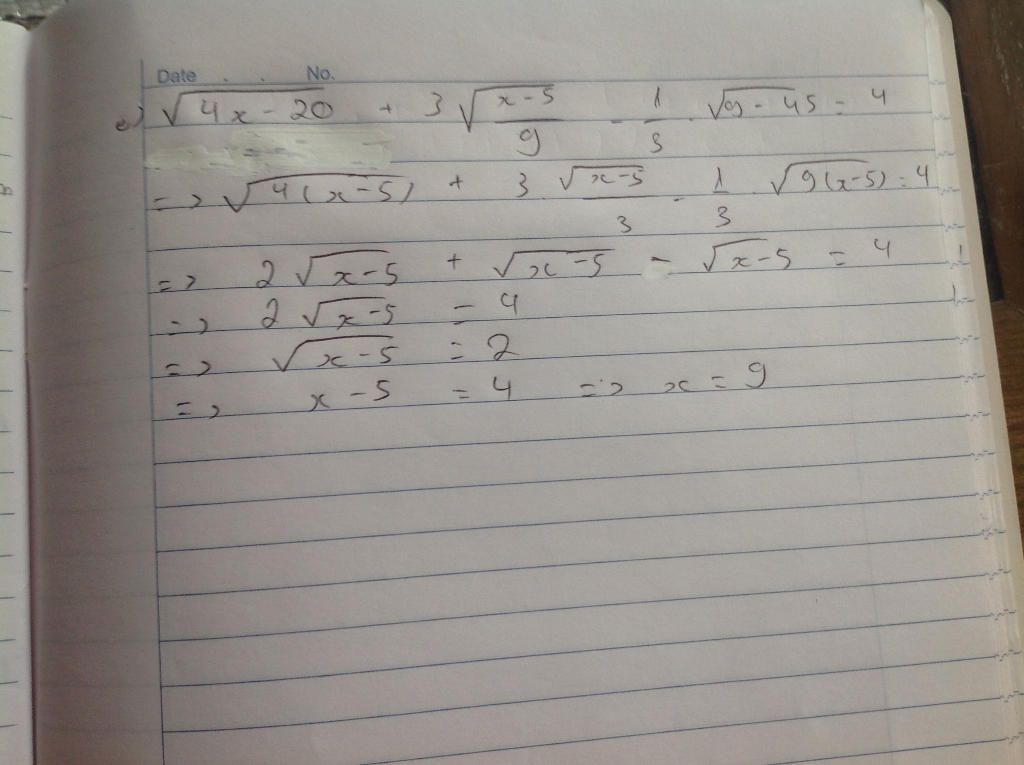 Date . . No.
c) √(4x-20) + 3 √((x-5)/9) - 1/3 . √(9-45) = 4
=> √(4(x-5)) + 3 . √(x-5)/3 - 1/3 . √(9(x-5)) = 4
=> 2 √(x-5) + √(x-5) - √(x-5) = 4
=> 2 √(x-5) = 4
=> √(x-5) = 2
=> x-5 = 4 => x = 9